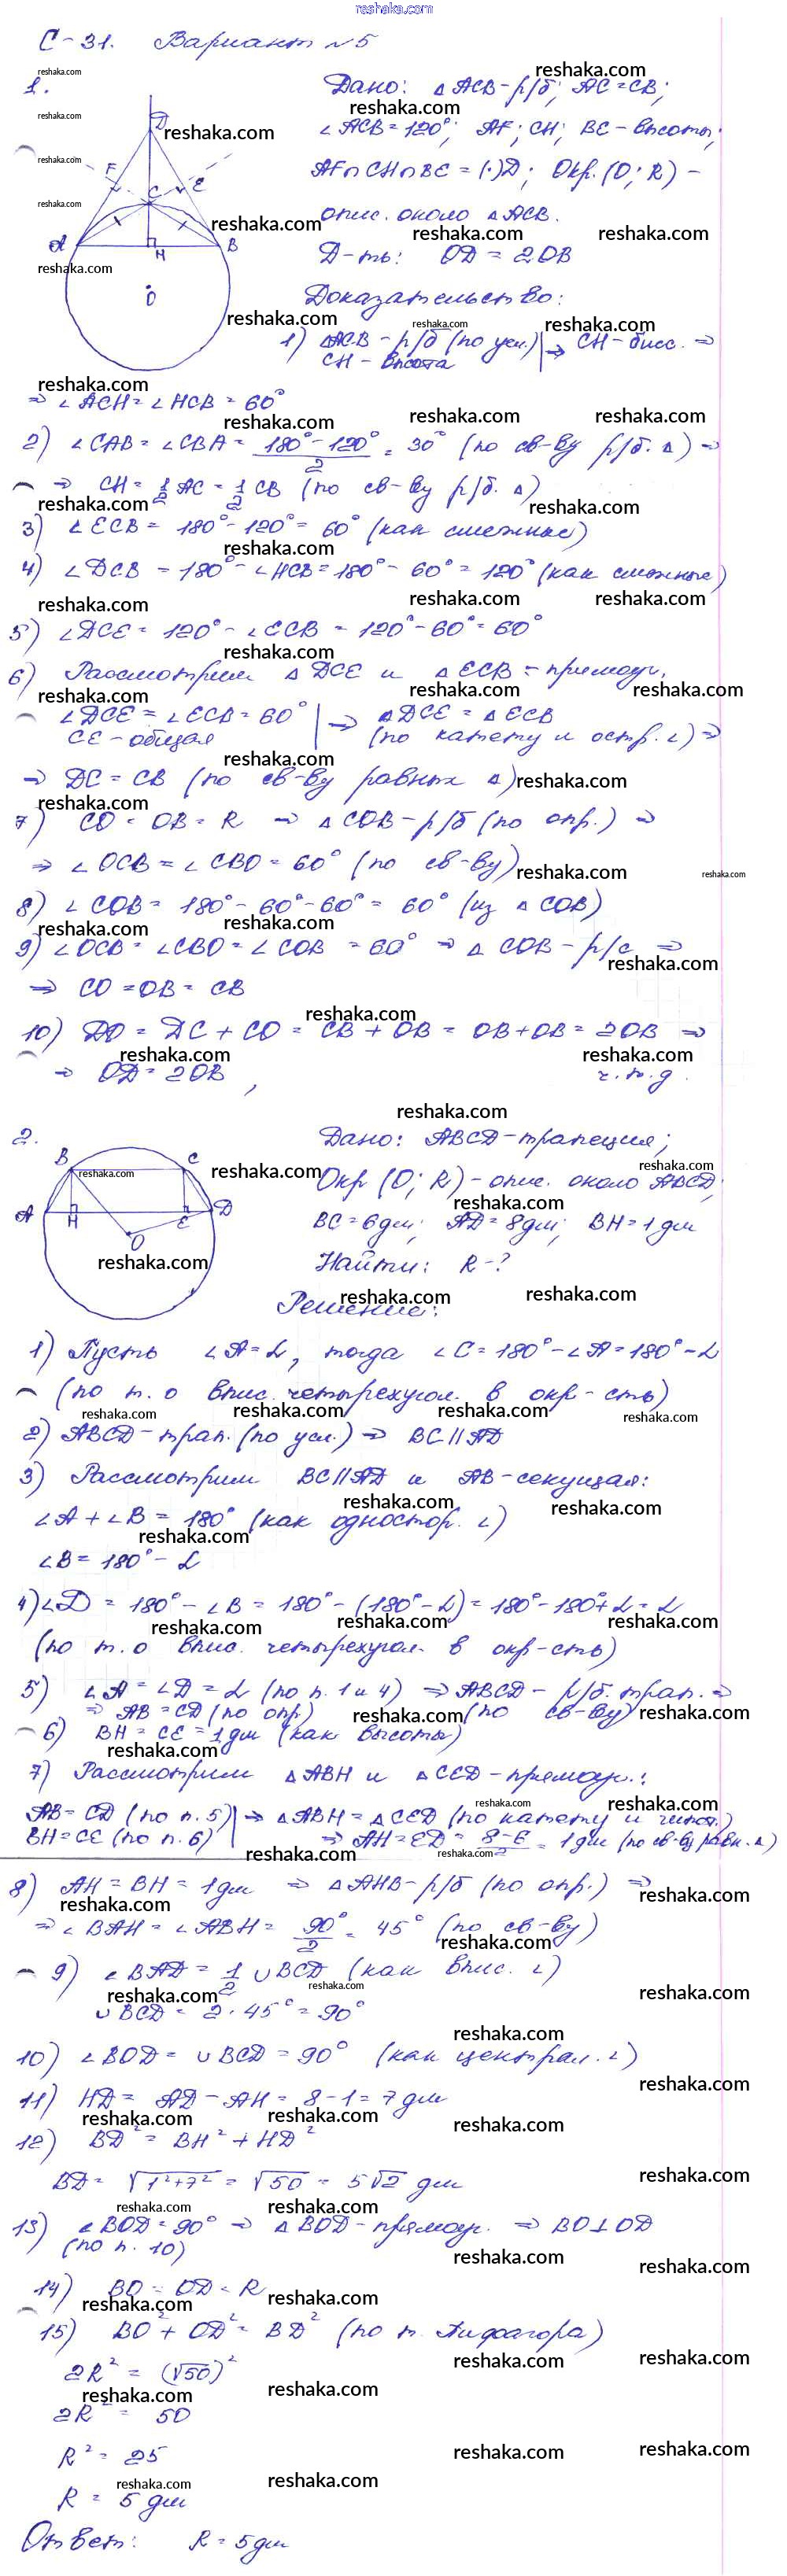 reshaka.com
С-31. Вариант №5
1.
Дано: △ ACB - р/б; AC = CB;
∠ACB = 120°; AF; CH; BE - высоты;
AF∩CH∩BE = (·)D; Окр. (O; R) -
опис. около △ ACB.
Д-ть: OD = 2OB
Доказательство:
D
F
C
E
A
H
B
O
1) △ACB - р/б (по усл.) | ⇒ CH - бисс. ⇒
CH - высота
⇒ ∠ACH = ∠HCB = 60°
2) ∠CAB = ∠CBA = (180° - 120°)/2 = 30° (по св-ву р/б. △) ⇒
⇒ CH = 1/2 AC = 1/2 CB (по св-ву р/б. △)
3) ∠ECB = 180° - 120° = 60° (как смежные)
4) ∠DCB = 180° - ∠HCB = 180° - 60° = 120° (как смежные)
5) ∠DCE = 120° - ∠ECB = 120° - 60° = 60°
6) Рассмотрим △ DCE и △ ECB - прямоуг.
∠DCE = ∠ECB = 60° | ⇒ △DCE = △ECB
CE - общая (по катету и остр. ∠) ⇒
⇒ DC = CB (по св-ву равных △)
7) CO = OB = R ⇒ △ COB - р/б (по опр.) ⇒
⇒ ∠OCB = ∠CBO = 60° (по св-ву)
8) ∠COB = 180° - 60° - 60° = 60° (из △ COB)
9) ∠OCB = ∠CBO = ∠COB = 60° ⇒ △ COB - р/с ⇒
⇒ CO = OB = CB
10) DO = DC + CO = CB + OB = OB + OB = 2OB ⇒
⇒ OD = 2OB, ч.т.д.
2.
Дано: ABCD - трапеция;
Окр (O; R) - опис. около ABCD;
BC = 6дм; AD = 8дм; BH = 1дм
Найти: R - ?
Решение:
B
C
A
H
E
D
O
1) Пусть ∠A = α, тогда ∠C = 180° - ∠A = 180° - α
(по т. о впис. четырехугол. в окр-сть)
2) ABCD - трап. (по усл.) ⇒ BC || AD
3) Рассмотрим BC || AD и AB - секущая:
∠A + ∠B = 180° (как одностор. ∠)
∠B = 180° - α
4) ∠D = 180° - ∠B = 180° - (180° - α) = 180° - 180° + α = α
(по т. о впис. четырехугол. в окр-сть)
5) ∠A = ∠D = α (по п. 1 и 4) ⇒ ABCD - р/б. трап. ⇒
⇒ AB = CD (по опр) (по св-ву)
6) BH = CE = 1дм (как высоты)
7) Рассмотрим △ ABH и △ CED - прямоуг.:
AB = CD (по п. 5) | ⇒ △ABH = △CED (по катету и гипот.)
BH = CE (по п. 6) | ⇒ AH = ED = (8 - 6)/2 = 1дм (по св-ву равн. △)
8) AH = BH = 1дм ⇒ △ AHB - р/б (по опр.) ⇒
⇒ ∠BAH = ∠ABH = 90°/2 = 45° (по св-ву)
9) ∠BAD = 1/2 ∪BCD (как впис. ∠)
∪BCD = 2 · 45° = 90°
10) ∠BOD = ∪BCD = 90° (как централ. ∠)
11) HD = AD - AH = 8 - 1 = 7 дм
12) BD² = BH² + HD²
BD = √(1² + 7²) = √50 = 5√2 дм
13) ∠BOD = 90° ⇒ △ BOD - прямоуг. ⇒ BO ⊥ OD
(по п. 10)
14) BO = OD = R
15) BO² + OD² = BD² (по т. Пифагора)
2R² = (√50)²
2R² = 50
R² = 25
R = 5 дм
Ответ: R = 5дм